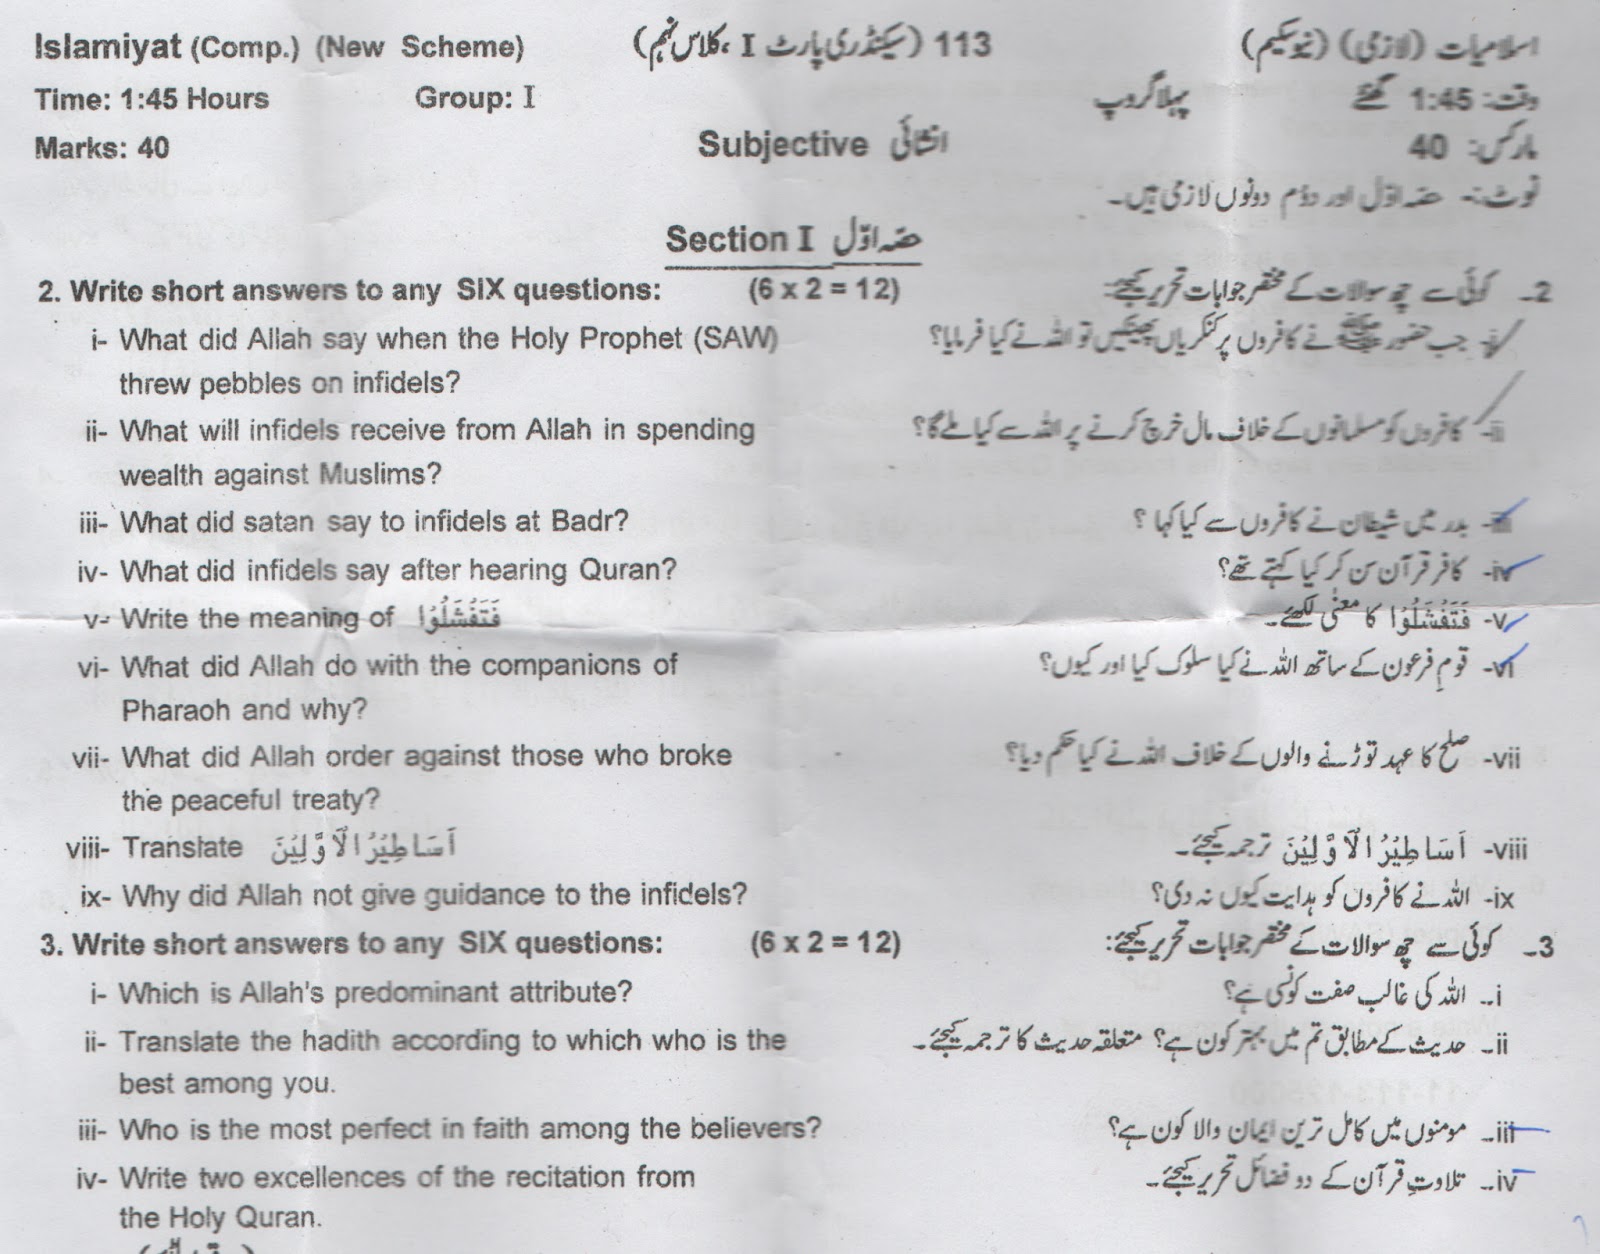 Islamiyat (Comp.) (New Scheme) 113 (سیکنڈری پارٹ I، کلاس نہم) اسلامیات (لازمی) (نیو سکیم)
Time: 1:45 Hours Group: I پہلا گروپ وقت: 1:45 گھنٹے
Marks: 40 Subjective انشائی مارکس: 40
نوٹ:۔ حصہ اوّل اور دوم دونوں لازمی ہیں۔
Section I حصہ اوّل
2. Write short answers to any SIX questions: (6 x 2 = 12) 2۔ کوئی سے چھ سوالات کے مختصر جوابات تحریر کیجئے:
i- What did Allah say when the Holy Prophet (SAW) جب حضور ﷺ نے کافروں پر کنکریاں پھینکیں تو اللہ نے کیا فرمایا؟ -i
threw pebbles on infidels?
ii- What will infidels receive from Allah in spending کافروں کو مسلمانوں کے خلاف مال خرچ کرنے پر اللہ سے کیا ملے گا؟ -ii
wealth against Muslims?
iii- What did satan say to infidels at Badr? بدر میں شیطان نے کافروں سے کیا کہا ؟ -iii
iv- What did infidels say after hearing Quran? کافر قرآن سن کر کیا کہتے تھے؟ -iv
v- Write the meaning of فَتَفْشَلُوْا فَتَفْشَلُوْا کا معنٰی لکھئے۔ -v
vi- What did Allah do with the companions of قومِ فرعون کے ساتھ اللہ نے کیا سلوک کیا اور کیوں؟ -vi
Pharaoh and why?
vii- What did Allah order against those who broke صلح کا عہد توڑنے والوں کے خلاف اللہ نے کیا حکم دیا؟ -vii
the peaceful treaty?
viii- Translate اَسَاطِيْرُ الْاَوَّلِيْنَ اَسَاطِيْرُ الْاَوَّلِيْنَ ترجمہ کیجئے۔ -viii
ix- Why did Allah not give guidance to the infidels? اللہ نے کافروں کو ہدایت کیوں نہ دی؟ -ix
3. Write short answers to any SIX questions: (6 x 2 = 12) 3۔ کوئی سے چھ سوالات کے مختصر جوابات تحریر کیجئے:
i- Which is Allah's predominant attribute? i۔ اللہ کی غالب صفت کونسی ہے؟
ii- Translate the hadith according to which who is the ii۔ حدیث کے مطابق تم میں بہتر کون ہے؟ متعلقہ حدیث کا ترجمہ کیجئے۔
best among you.
iii- Who is the most perfect in faith among the believers? iii۔ مومنوں میں کامل ترین ایمان والا کون ہے؟
iv- Write two excellences of the recitation from iv۔ تلاوتِ قرآن کے دو فضائل تحریر کیجئے۔
the Holy Quran.